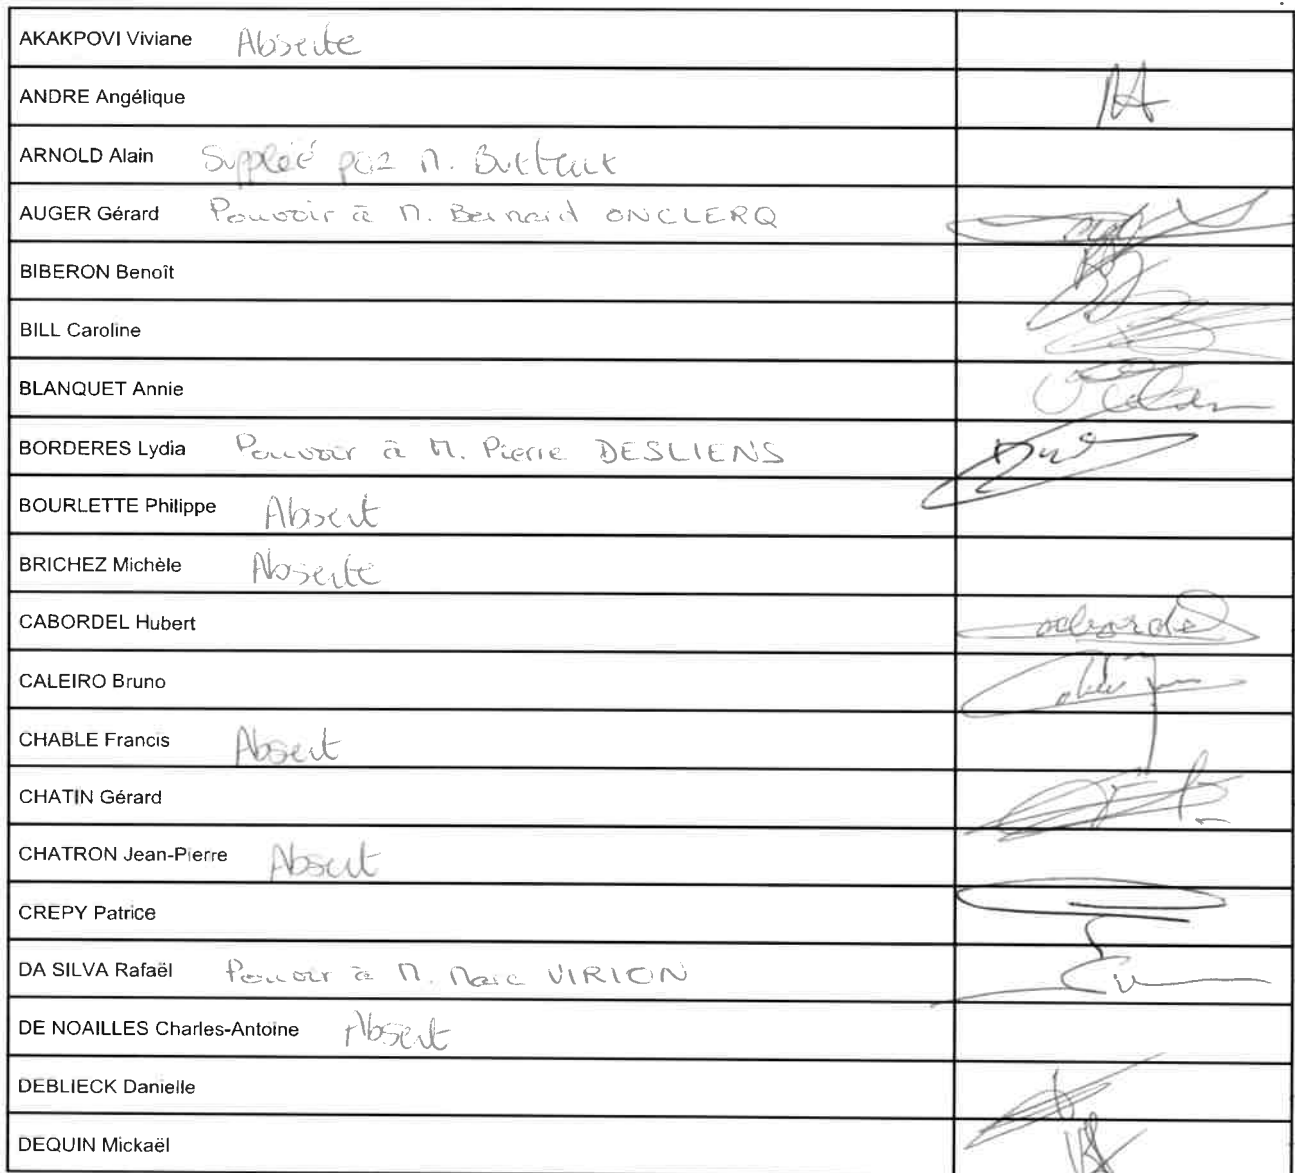 AKAKPOVI Viviane Absente
ANDRE Angélique
ARNOLD Alain Suppléé par M. Butteux
AUGER Gérard Pouvoir à M. Bernard ONCLERQ
BIBERON Benoît
BILL Caroline
BLANQUET Annie
BORDERES Lydia Pouvoir à M. Pierre DESLIENS
BOURLETTE Philippe Absent
BRICHEZ Michèle Absente
CABORDEL Hubert
CALEIRO Bruno
CHABLE Francis Absent
CHATIN Gérard
CHATRON Jean-Pierre Absent
CREPY Patrice
DA SILVA Rafaël Pouvoir à M. Marc VIRION
DE NOAILLES Charles-Antoine Absent
DEBLIECK Danielle
DEQUIN Mickaël